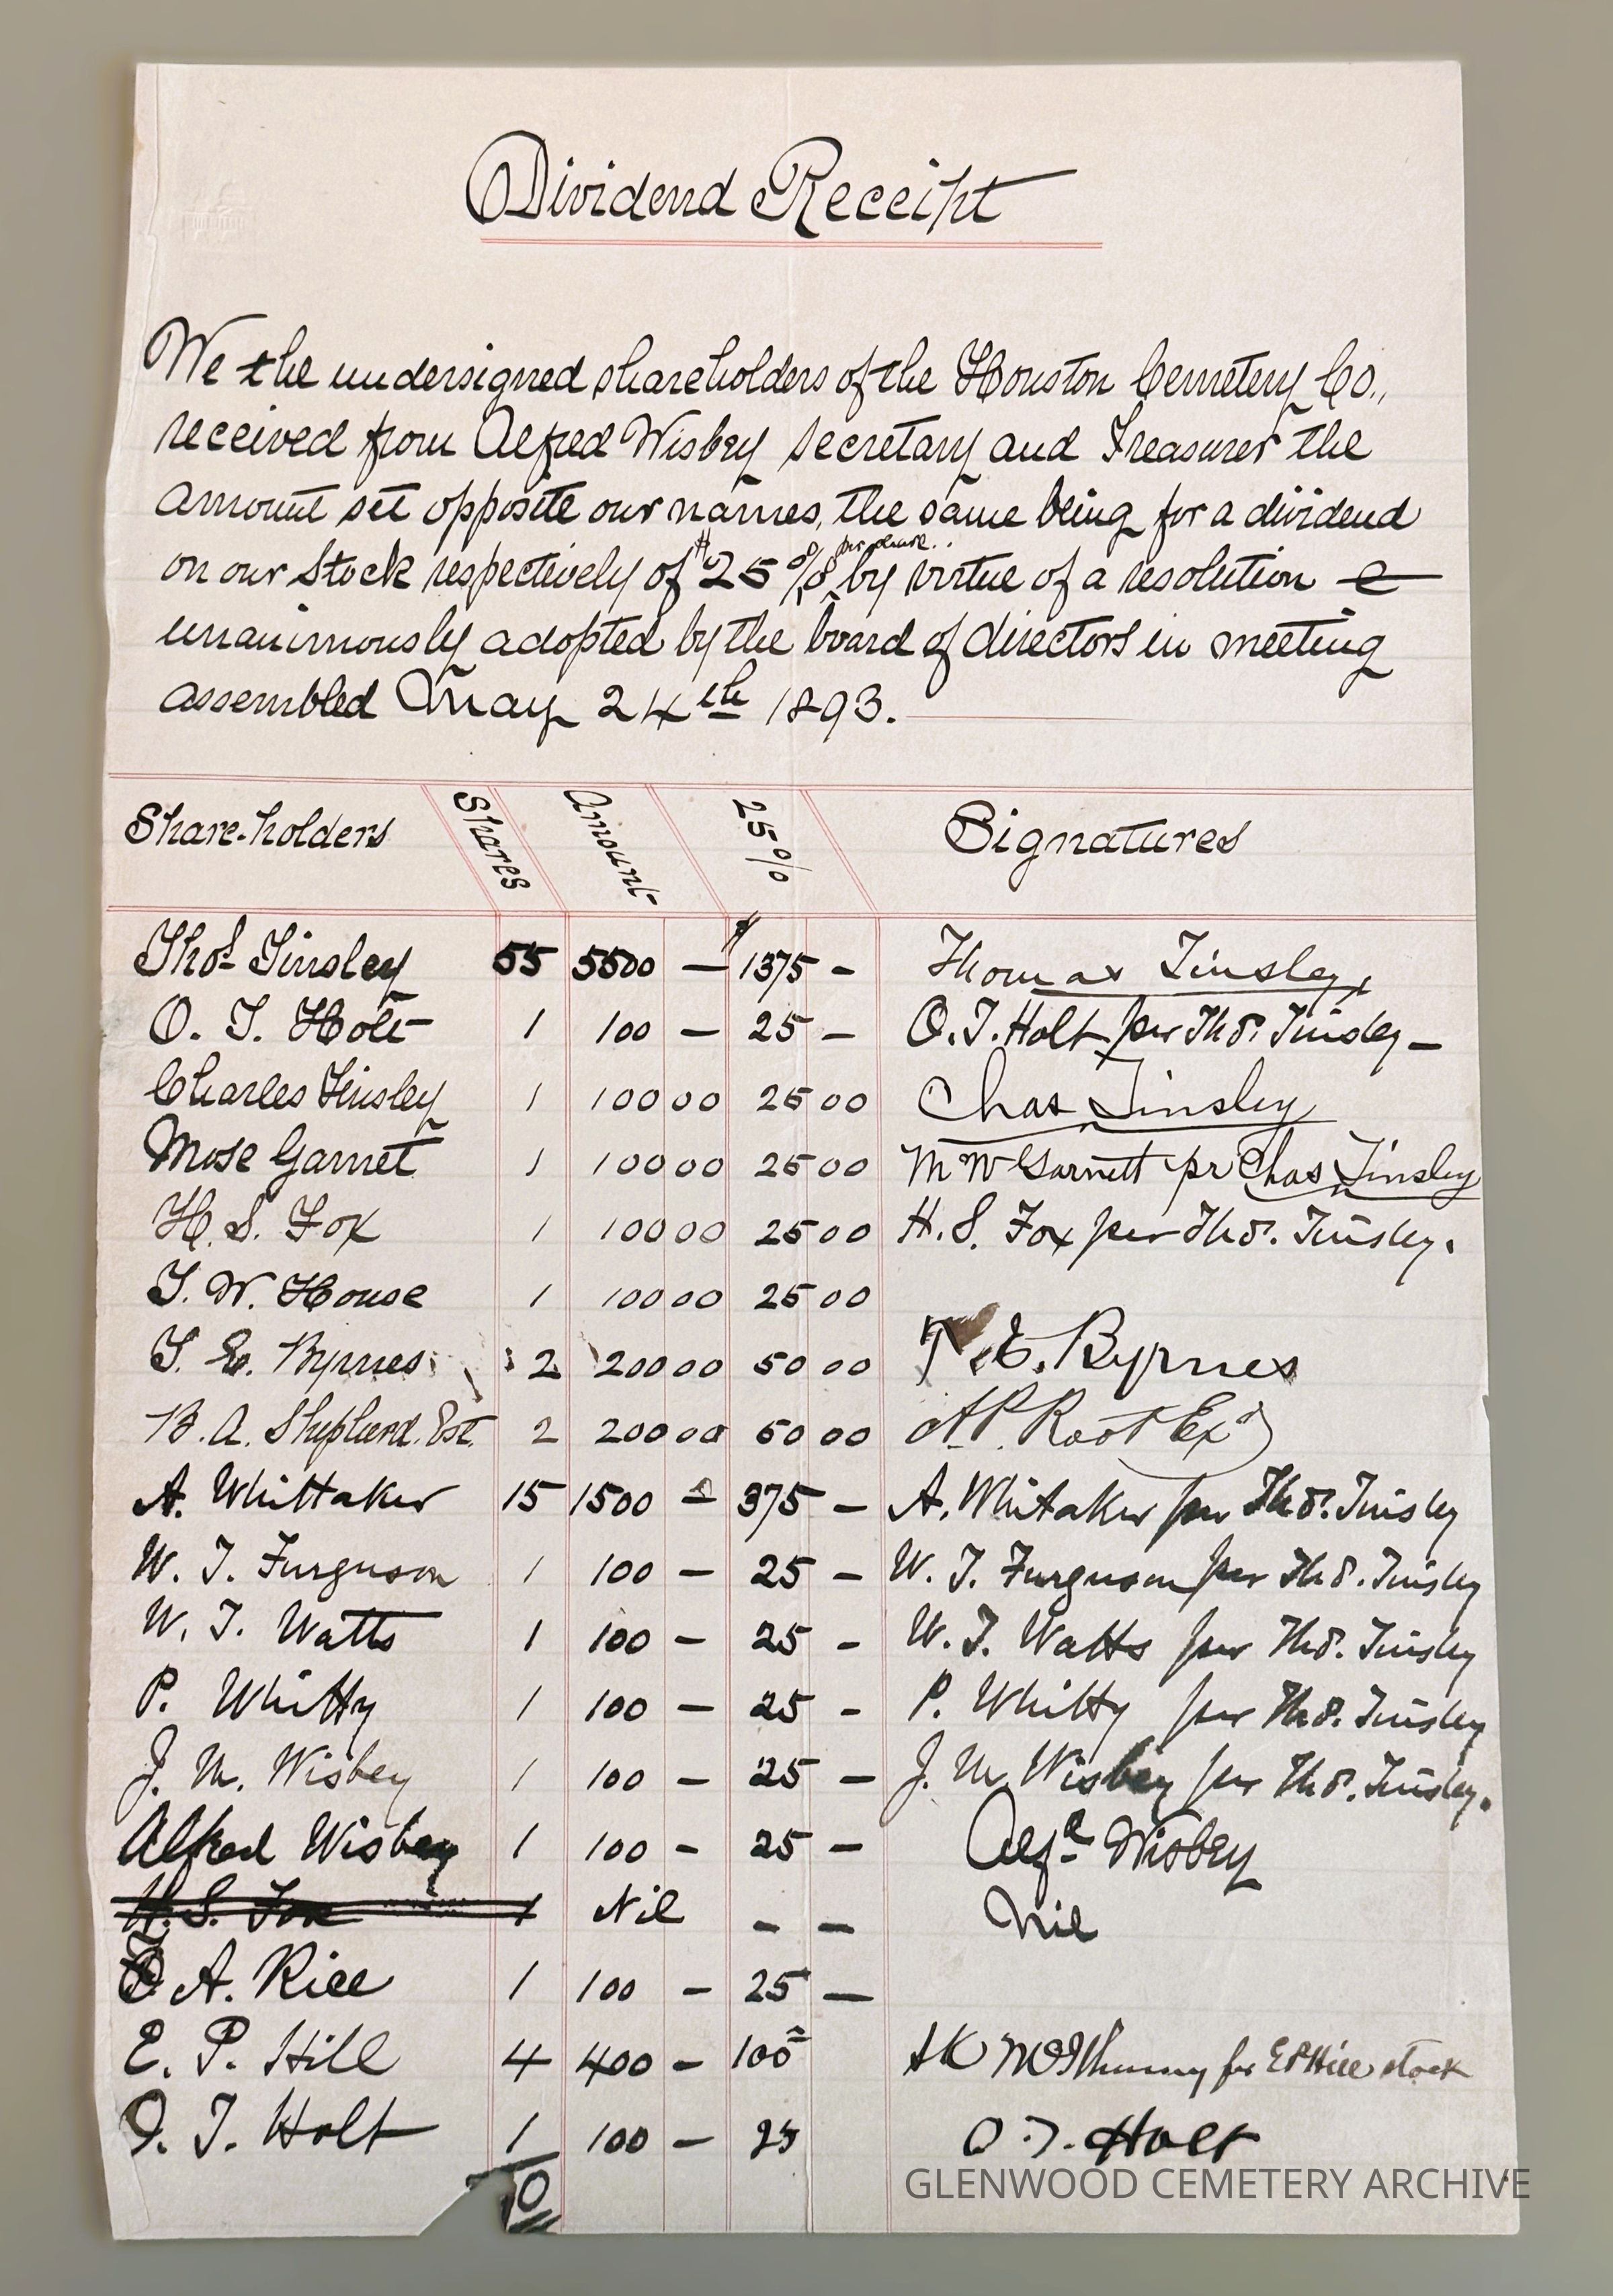 Dividend Receipt
We the undersigned shareholders of the Houston Cemetery Co.,
received from Alfred Wisbey secretary and Treasurer the
amount set opposite our names, the same being for a dividend
per share.
on our Stock respectively of $25 % by virtue of a resolution
unanimously adopted by the board of directors in meeting
assembled May 24th 1893.
Share-holders Shares Amount 25% Signatures
Thos Tinsley 55 5500 — $1375 - Thomas Tinsley
O. T. Holt 1 100 — 25 — O. T. Holt per Thos. Tinsley —
Charles Tinsley 1 100 00 25 00 Chas Tinsley
Mose Garnet 1 100 00 25 00 M W Garnett pr Chas Tinsley
H. S. Fox 1 100 00 25 00 H. S. Fox per Thos. Tinsley.
T. W. House 1 100 00 25 00
T. E. Byrnes 2 200 00 50 00 T. E. Byrnes
B. A. Shepherd. Est. 2 200 00 50 00 A. P. Root Exr
A. Whittaker 15 1500 — 375 — A. Whitaker per Thos. Tinsley
W. J. Furguson 1 100 — 25 — W. J. Furguson per Thos. Tinsley
W. J. Watts 1 100 — 25 - W. J. Watts per Thos. Tinsley
P. Whitty 1 100 — 25 - P. Whitty per Thos. Tinsley
J. M. Wisbey 1 100 — 25 — J. M. Wisbey per Thos. Tinsley.
Alfred Wisbey 1 100 - 25 — Alfd Wisbey
H. S. Fox 1 Nil - — Nil
A. Rice 1 100 - 25 —
E. P. Hill 4 400 - 100 for E P Hill stock
O. T. Holt 1 100 — 25 O. T. Holt
GLENWOOD CEMETERY ARCHIVE